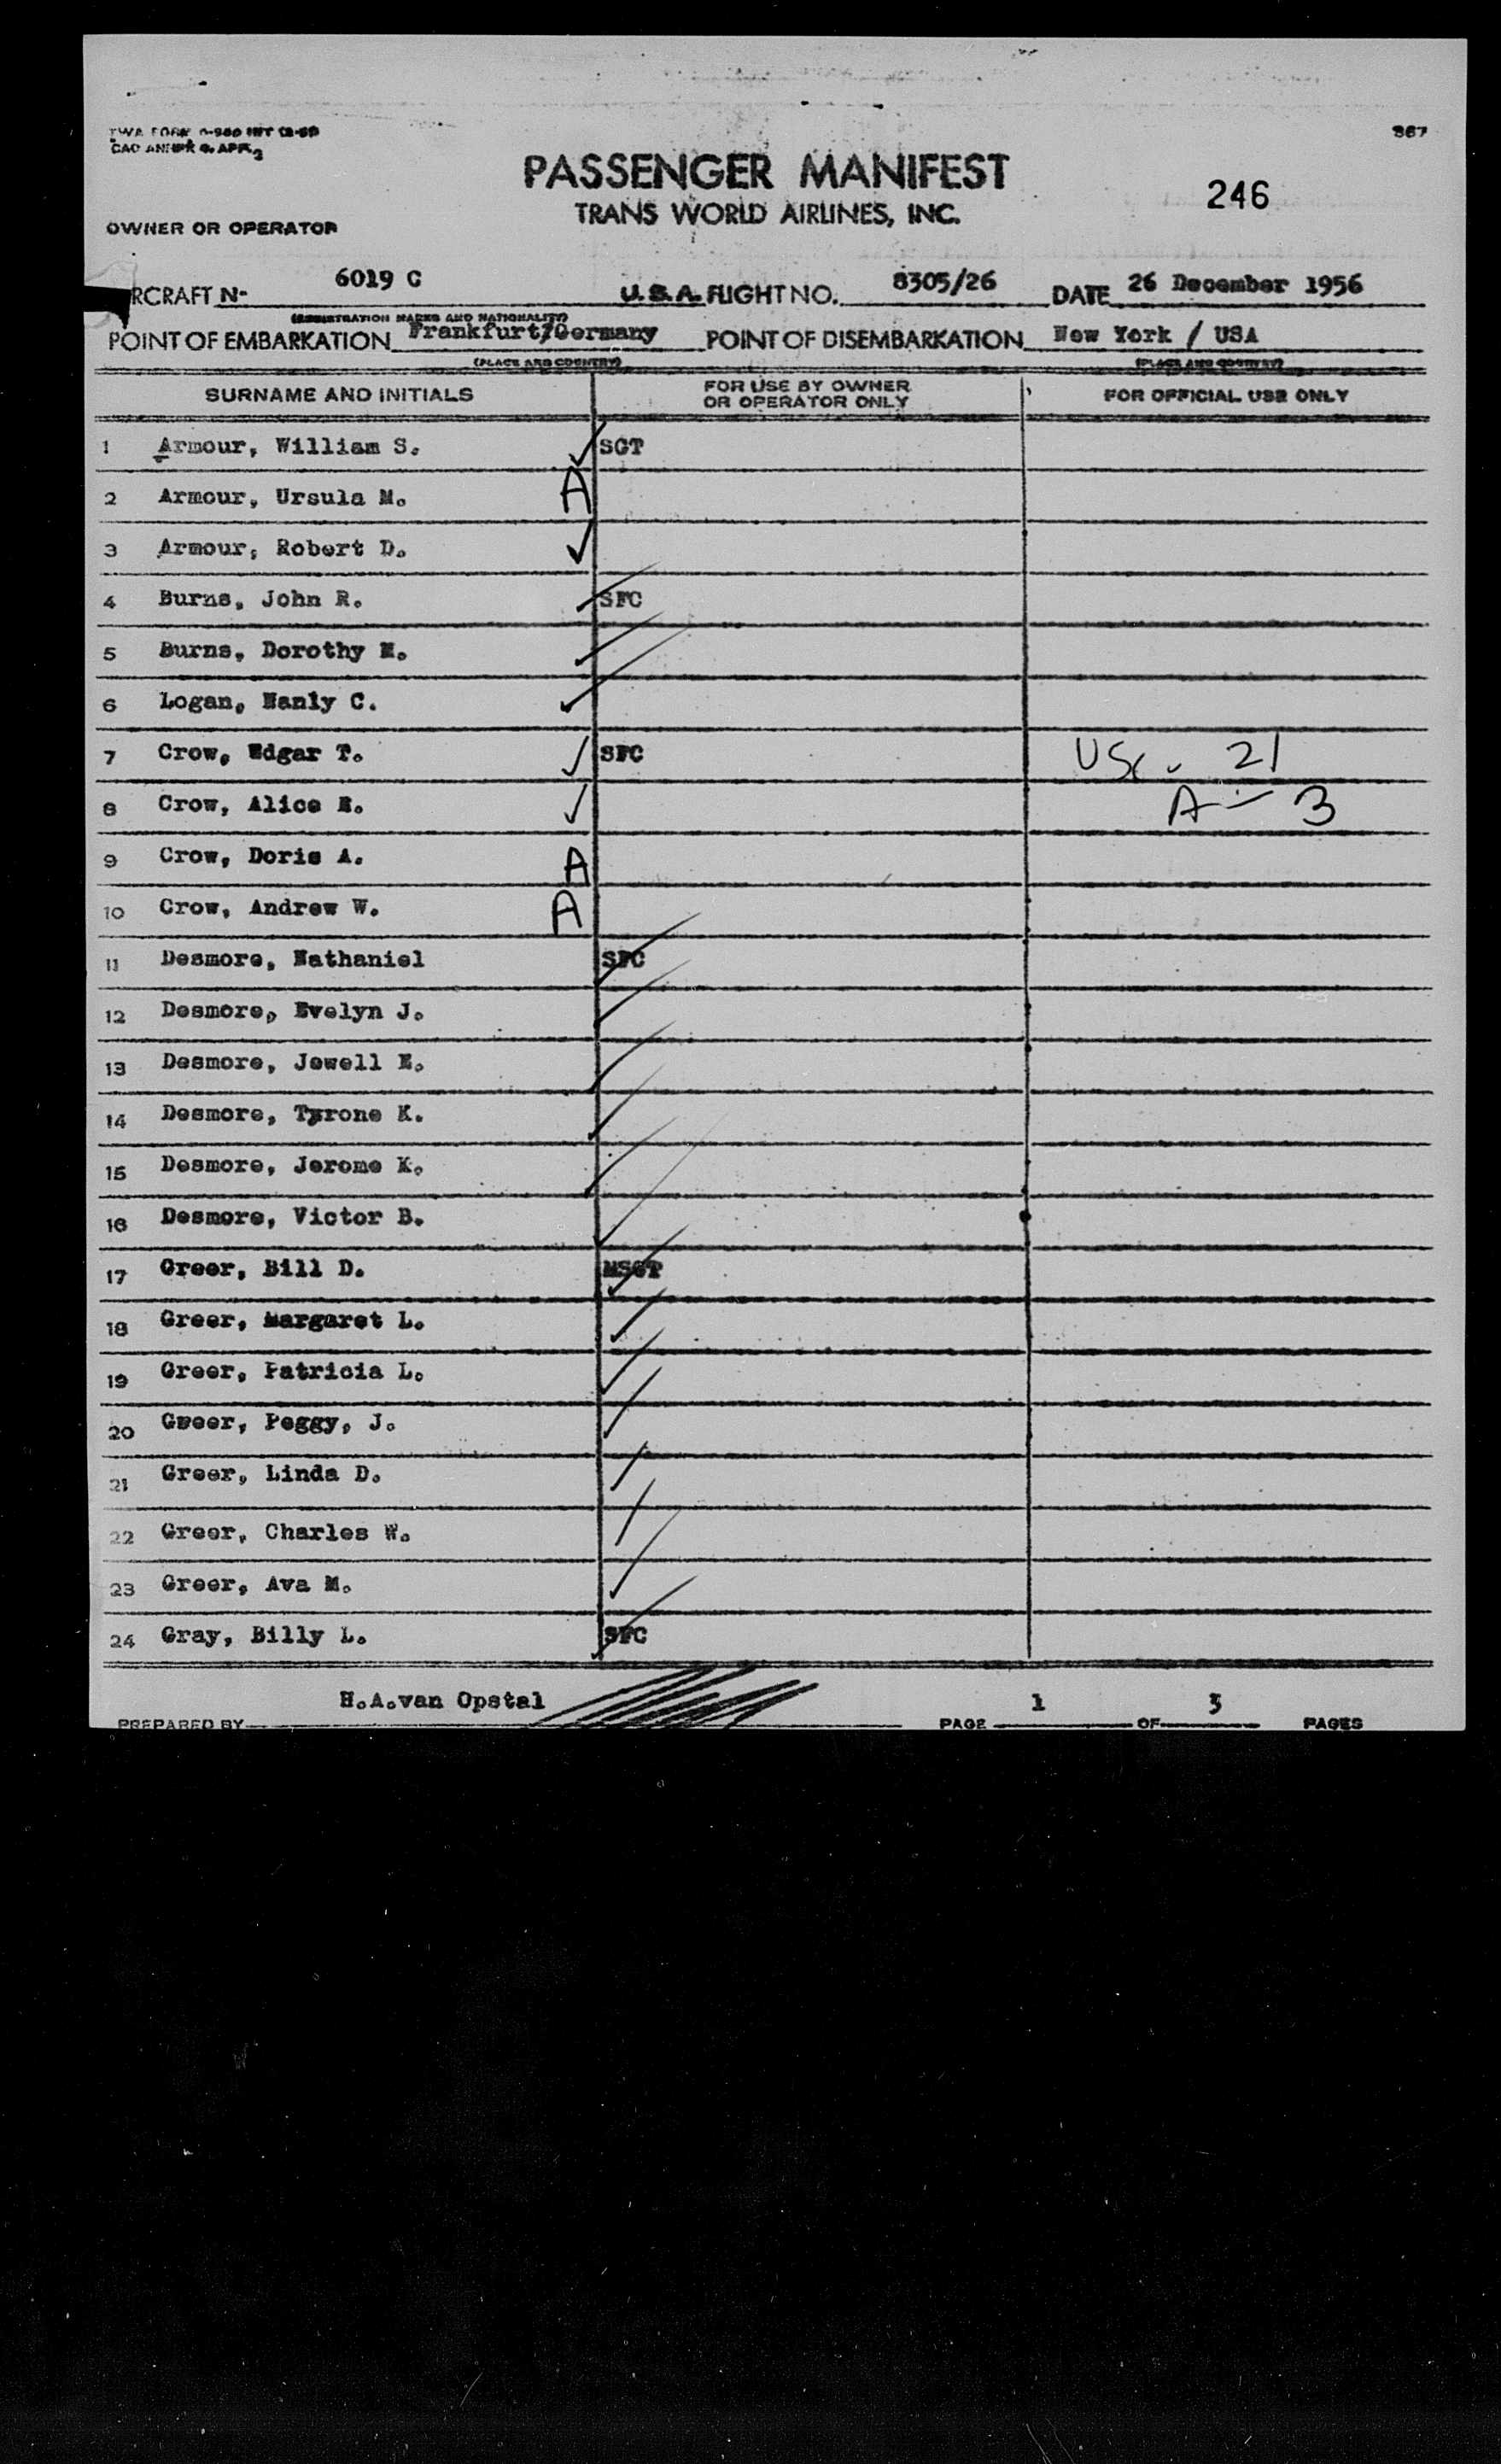 367
PASSENGER MANIFEST
246
TRANS WORLD AIRLINES, INC.
OWNER OR OPERATOR
RCRAFT N- 6019 C U.S.A. FLIGHT NO. 8305/26 DATE 26 December 1956
(REGISTRATION MARKS AND NATIONALITY)
POINT OF EMBARKATION Frankfurt/Germany POINT OF DISEMBARKATION New York / USA
(PLACE AND COUNTRY) (PLACE AND COUNTRY)
SURNAME AND INITIALS FOR USE BY OWNER OR OPERATOR ONLY FOR OFFICIAL USE ONLY
1 Armour, William S. SGT
2 Armour, Ursula M. A
3 Armour, Robert D.
4 Burns, John R. SFC
5 Burns, Dorothy M.
6 Logan, C.
7 Crow, Edgar T. SFC USC - 21
8 Crow, Alice E. A - 3
9 Crow, Doris A. A
10 Crow, Andrew W. A
11 Desmore, Nathaniel SFC
12 Desmore, Evelyn J.
13 Desmore, Jewell E.
14 Desmore, Tyrone K.
15 Desmore, Jerome K.
16 Desmore, Victor B.
17 Greer, Bill D. MSGT
18 Greer, Margaret L.
19 Greer, Patricia L.
20 Greer, Peggy, J.
21 Greer, Linda D.
22 Greer, Charles W.
23 Greer, Ava M.
24 Gray, Billy L. SFC
H.A.van Opstal
PREPARED BY PAGE 1 OF 3 PAGES